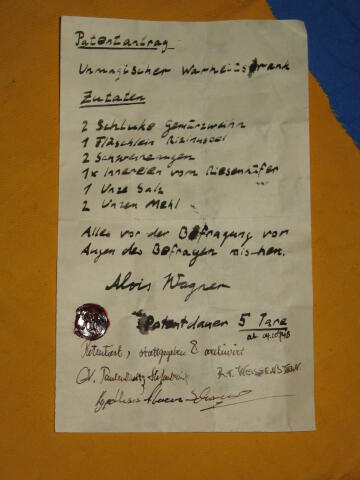 Patentantrag
Unmagischer Warheitstrank
Zutaten
2 Schluke Gewürzwein
1 Fläschlein Rizinusoel
2 Schweineaugen
1x Innereen vom Riesenkäfer
1 Unze Salz
2 Unzen Mehl
Alles vor der Befragung vor
Augen des Befragen mischen.
Alois Wagner
Patentdauer 5 Tage
ab
stattgegeben & archiviert
R.v. WEISSENSTEIN